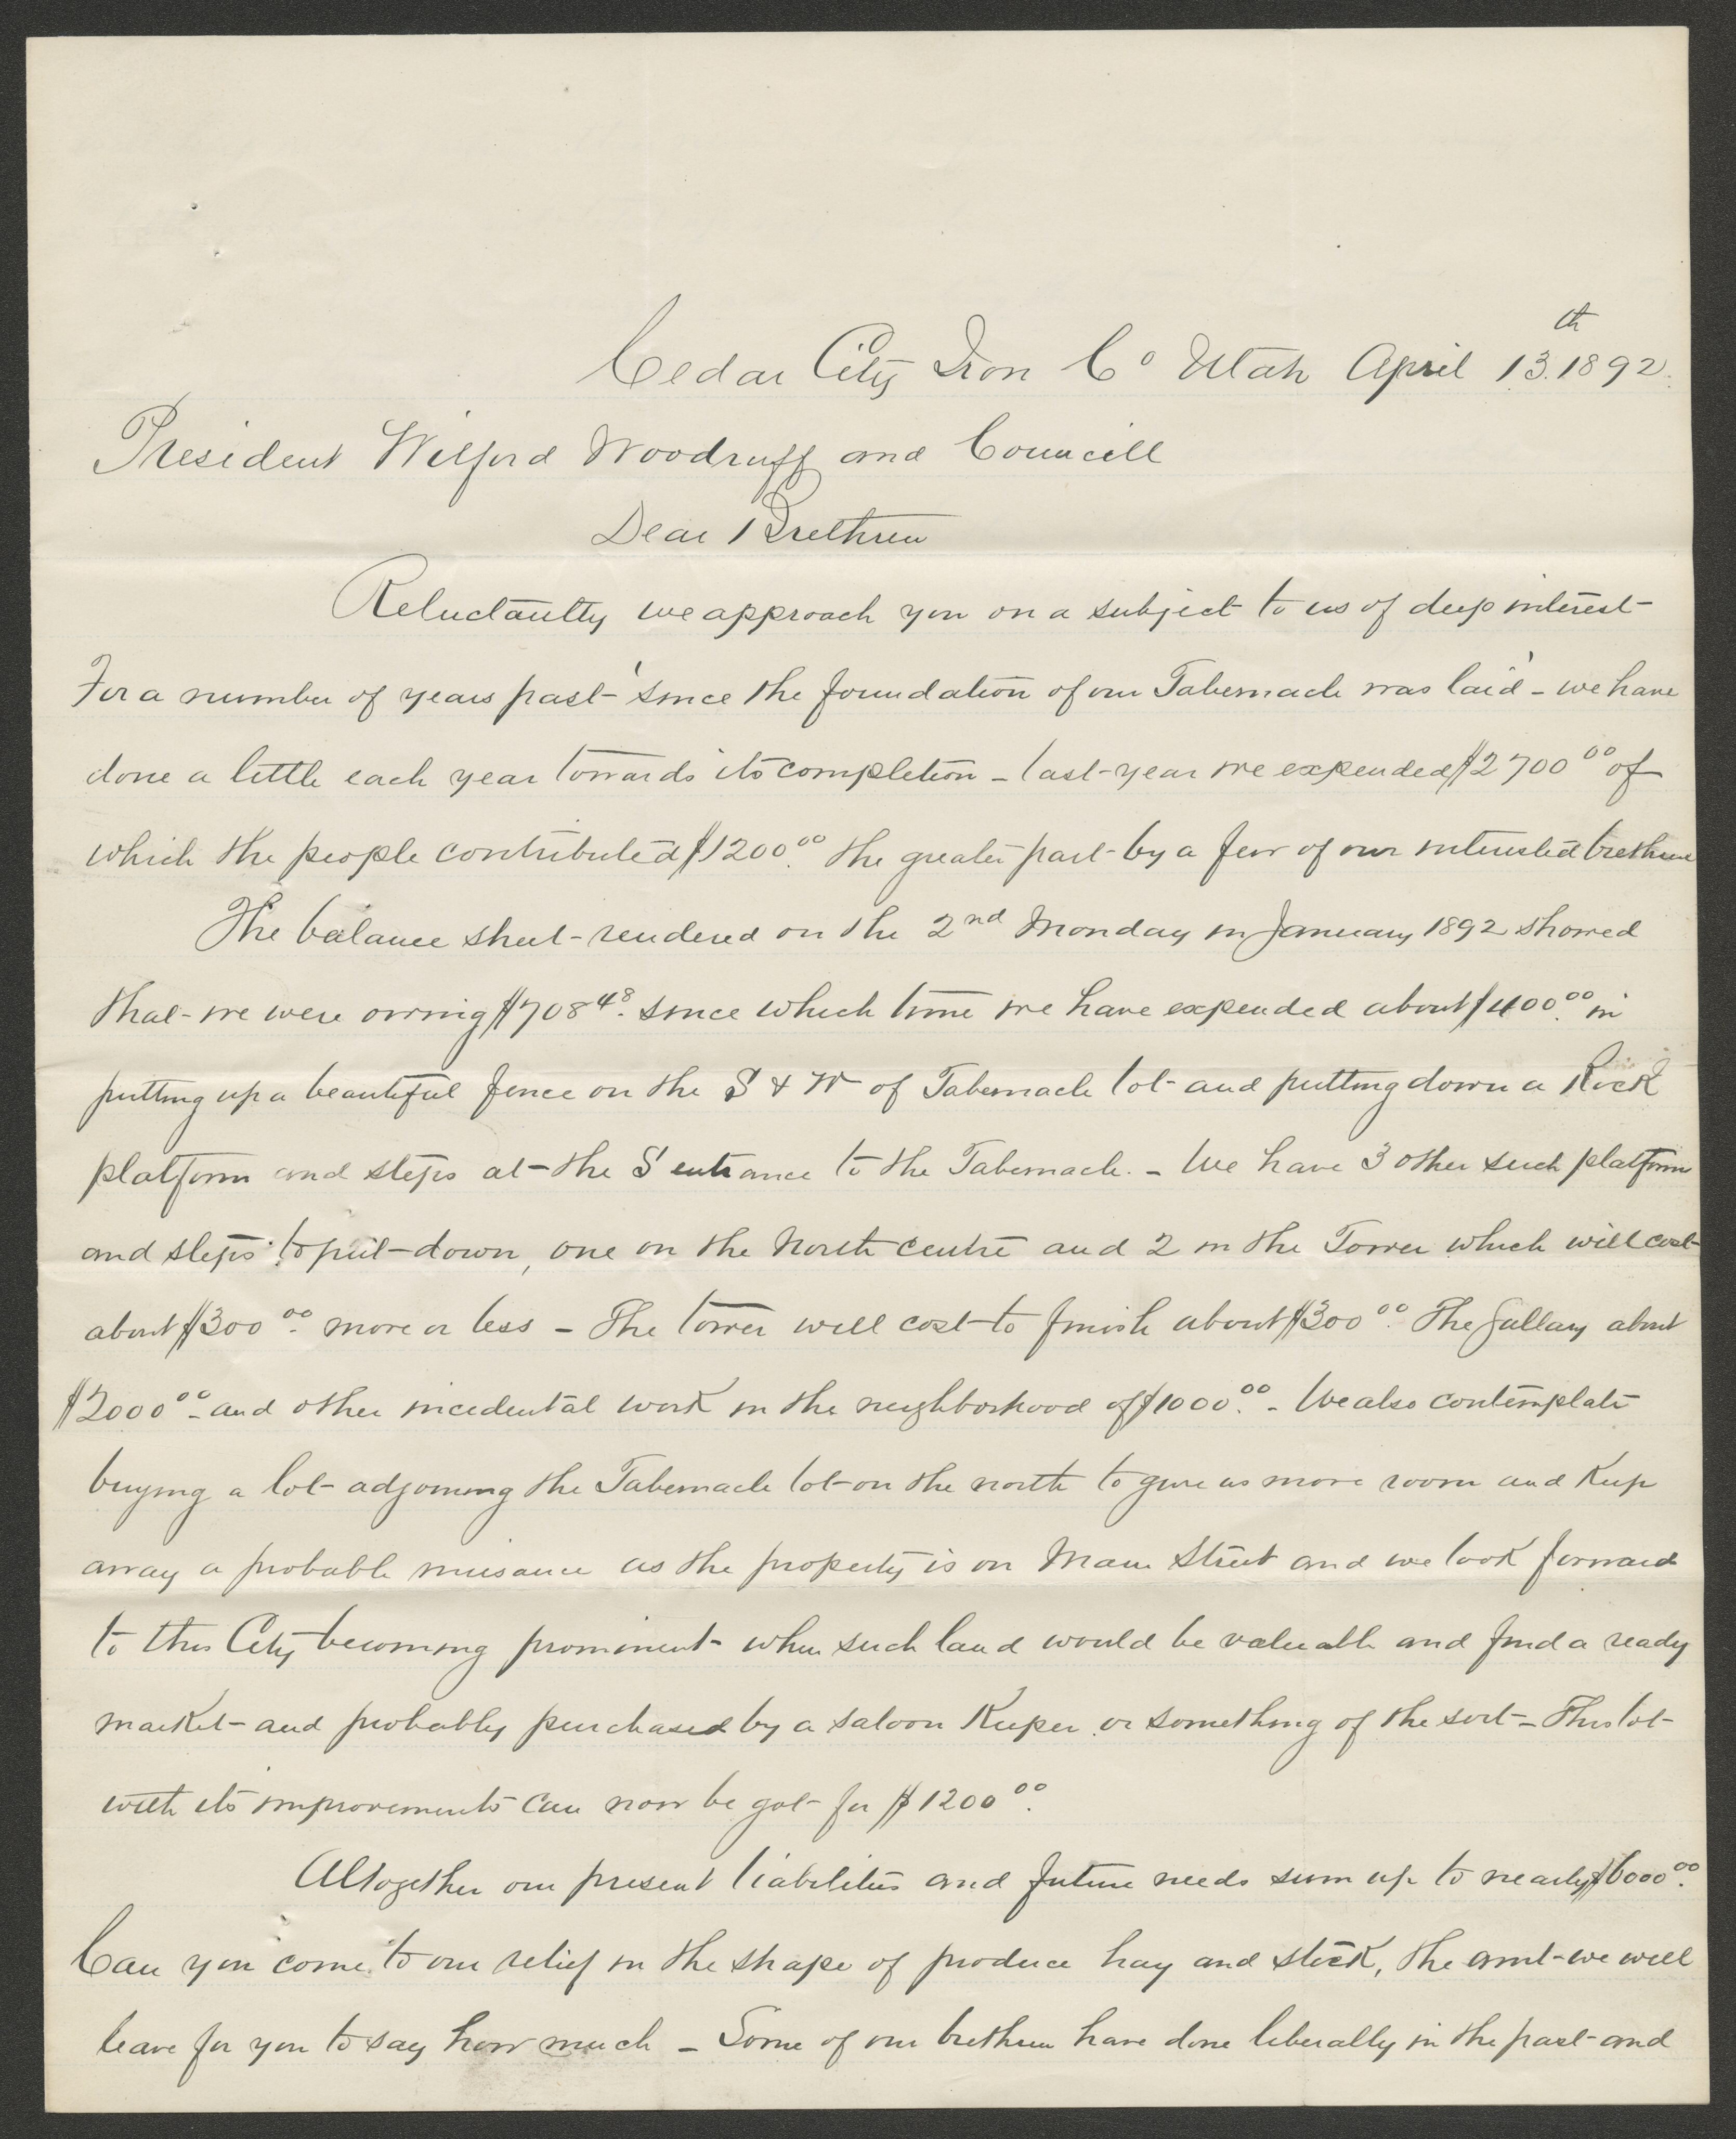 Cedar City Iron Co Utah April 13th. 1892.
President Wilford Woodruff and Councill
Dear Brethren
Reluctantly we approach you on a subject to us of deep interest
For a number of years past- 'since the foundation of our Tabernacle was laid' - we have
done a little each year towards its completion - last year we expended $2700 00 of
which the people contributed $1200.00 the greater part by a few of our interested brethren
The balance sheet rendered on the 2nd Monday in January 1892 showed
that we were owing $708 48. since which time we have expended about $400.00 in
putting up a beautiful fence on the S & W of Tabernacle lot and putting down a Rock
platform and steps at the S entrance to the Tabernacle. - We have 3 other such platform
and steps to put down, one on the North centre and 2 in the Tower which will cost
about $300 00. more or less - The tower will cost to finish about $300 00. The Gallary about
$2000 00 - and other incedental work in the neighborhood of $1000.00 - We also contemplate
buying a lot adjoining the Tabernacle lot on the north to give us more room and Keep
away a probable nuisance as the property is on Main Street and we look forward
to this City becoming prominent when such land would be valuable and find a ready
market and probably purchased by a saloon Keeper or something of the sort - This lot
with its improvements can now be got for $1200 00.
Altogether our present liabilities and future needs sum up to nearly $6000 00.
Can you come to our relief in the shape of produce hay and stock, the amt we will
leave for you to say how much - Some of our brethren have done liberally in the past and